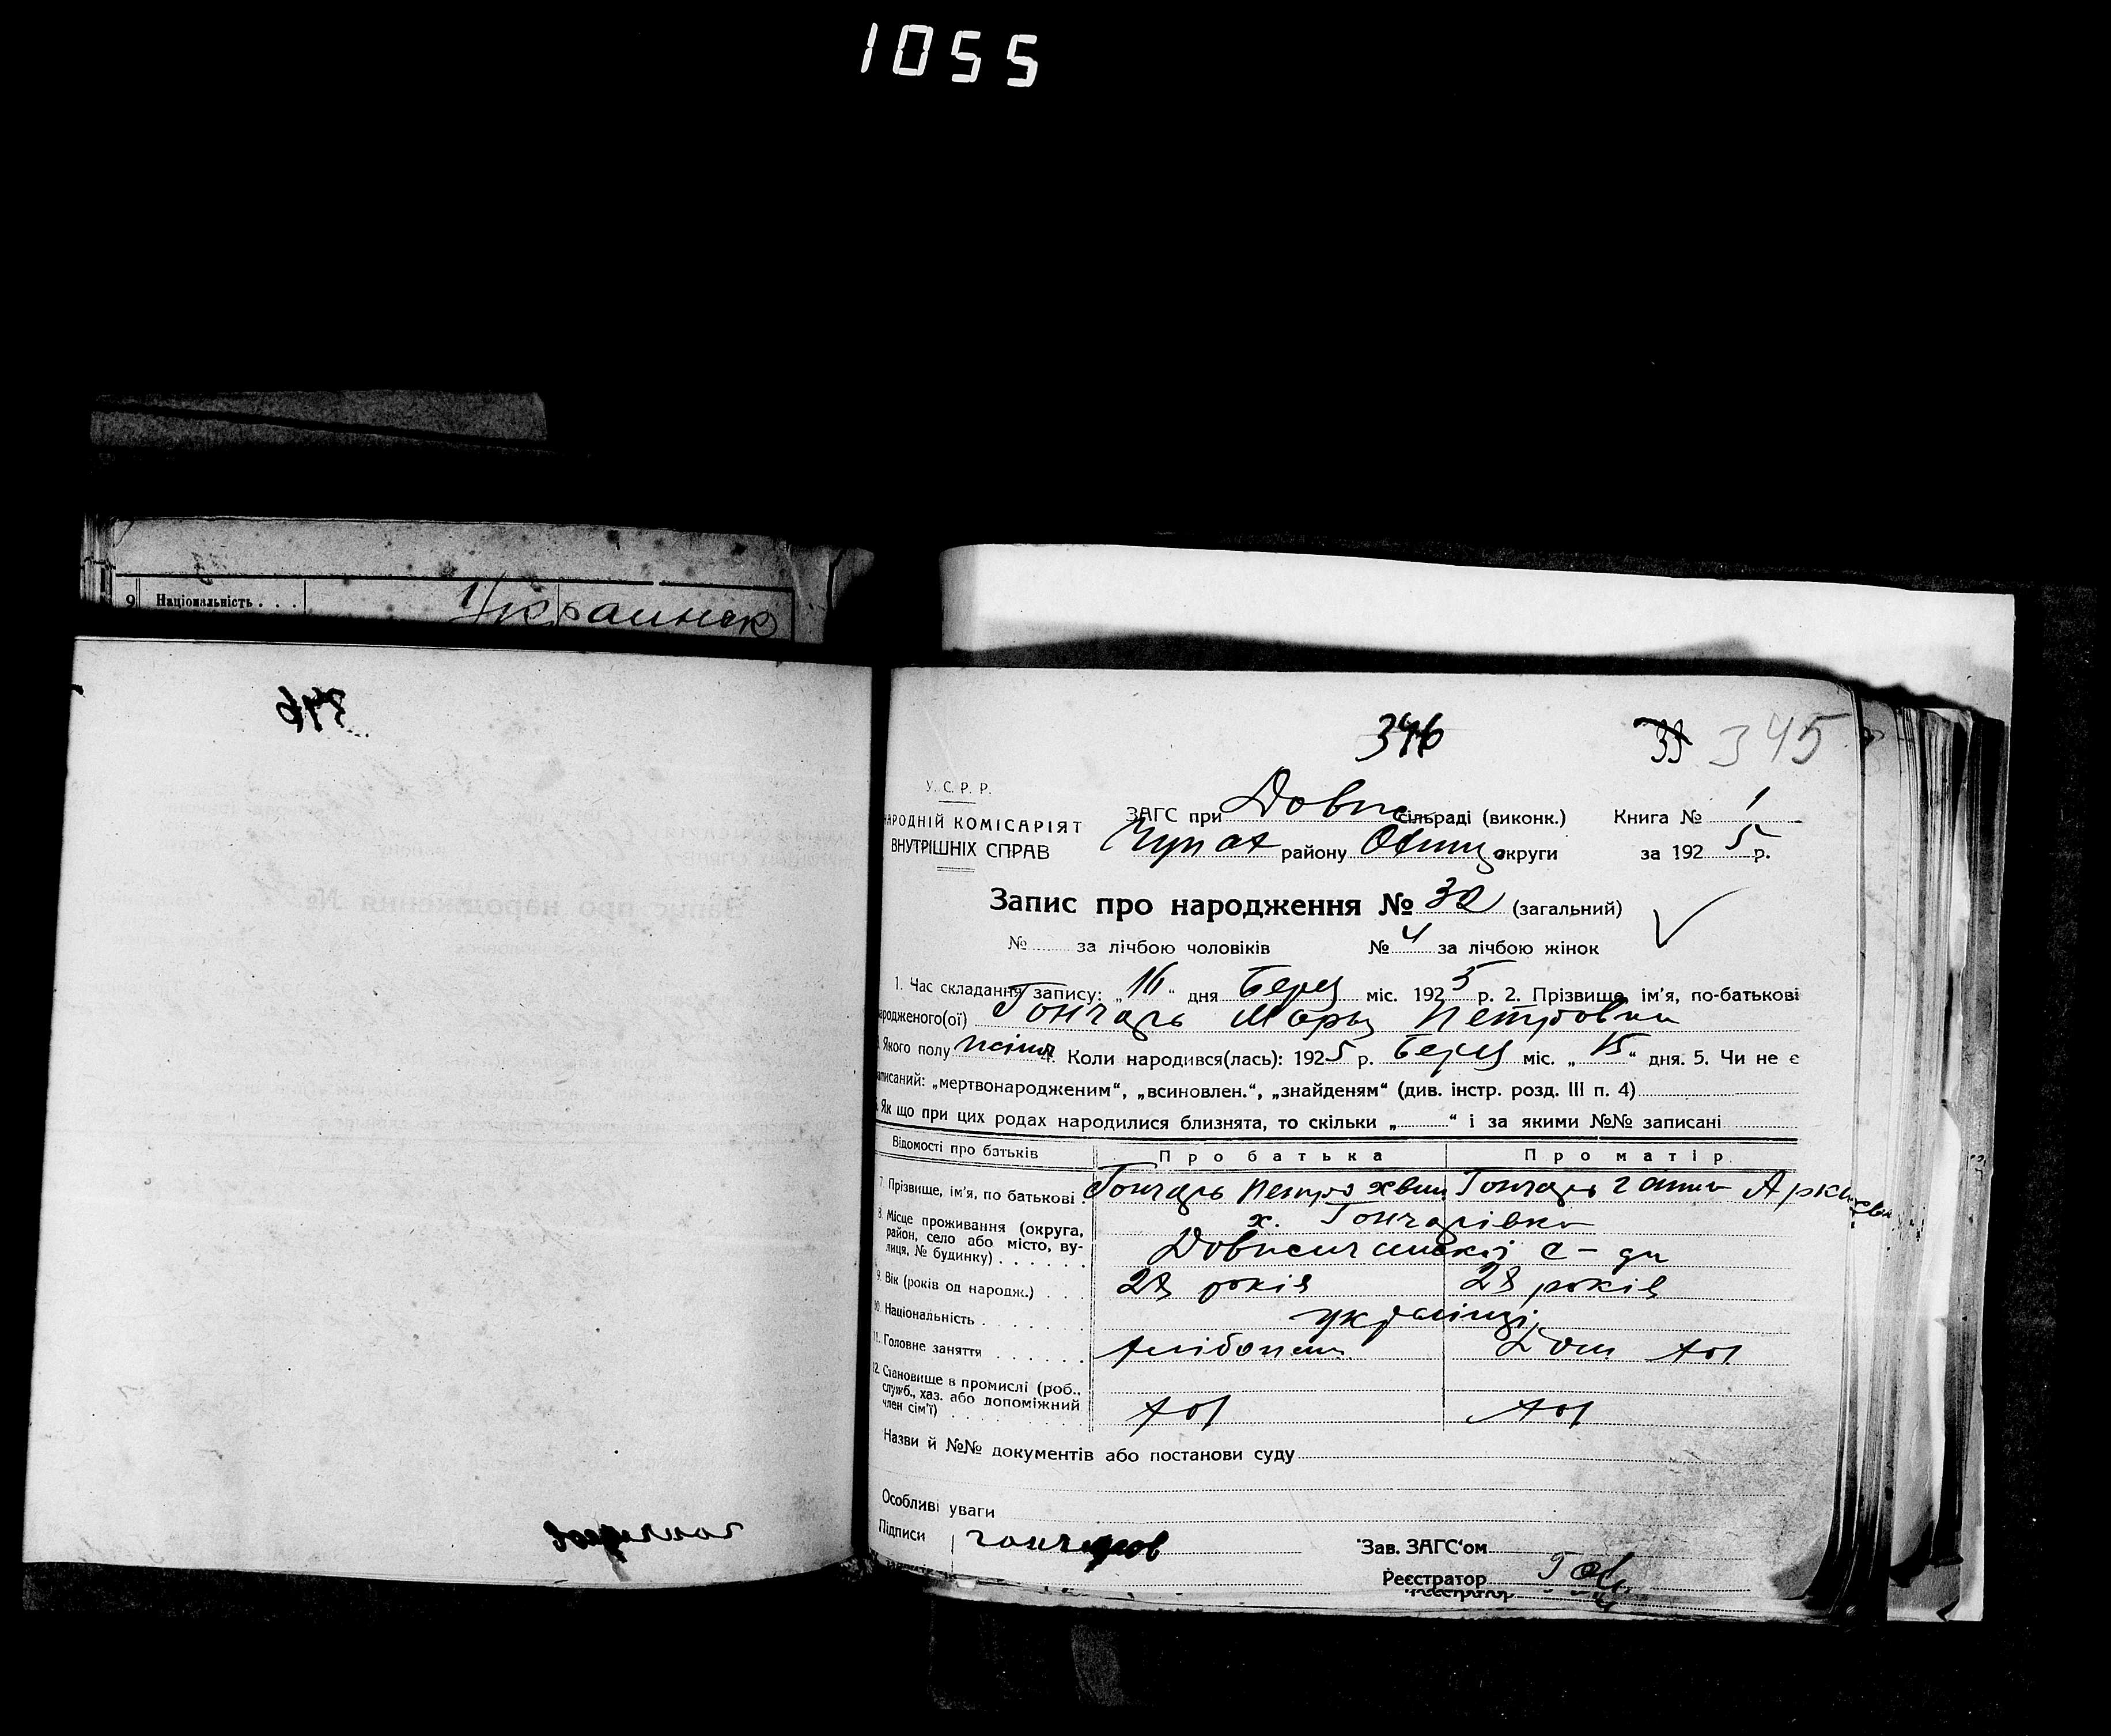 1055
9 Національність . . . Украинск
346
346 345
У. С. Р. Р.
НАРОДНІЙ КОМІСАРІЯТ
ВНУТРІШНІХ СПРАВ
ЗАГС при Довж сільраді (виконк.) Книга № 1
району округи за 1925 р.
Запис про народження № 32 (загальний)
№ за лічбою чоловіків № 4 за лічбою жінок
1. Час складання запису: „16“ дня Берец міс. 1925 р. 2. Прізвище, ім'я, по-батькові
народженого(ої) Гончарь Петровна
Якого полу 4. Коли народився(лась): 1925 р. Берец міс. „15“ дня. 5. Чи не є
записаний: „мертвонародженим“, „всиновлен.“, „знайденям“ (див. інстр. розд. III п. 4)
Як що при цих родах народилися близнята, то скільки „ “ і за якими №№ записані
Відомості про батьків Про батька Про матір
7. Прізвище, ім'я, по батькові Гончарь Петро Гончарь Ганна
8. Місце проживання (округа, район, село або місто, вулиця, № будинку) х. Гончарівка
с-ди
9. Вік (років од народж.) 28 років 28 років
10. Національність українці
11. Головне заняття хлібопаш Дом хоз
12. Становище в промислі (роб., служб., хаз. або допоміжний член сім'ї) хоз хоз
Назви й №№ документів або постанови суду
Особливі уваги
Підписи Зав. ЗАГС'ом
Реєстратор